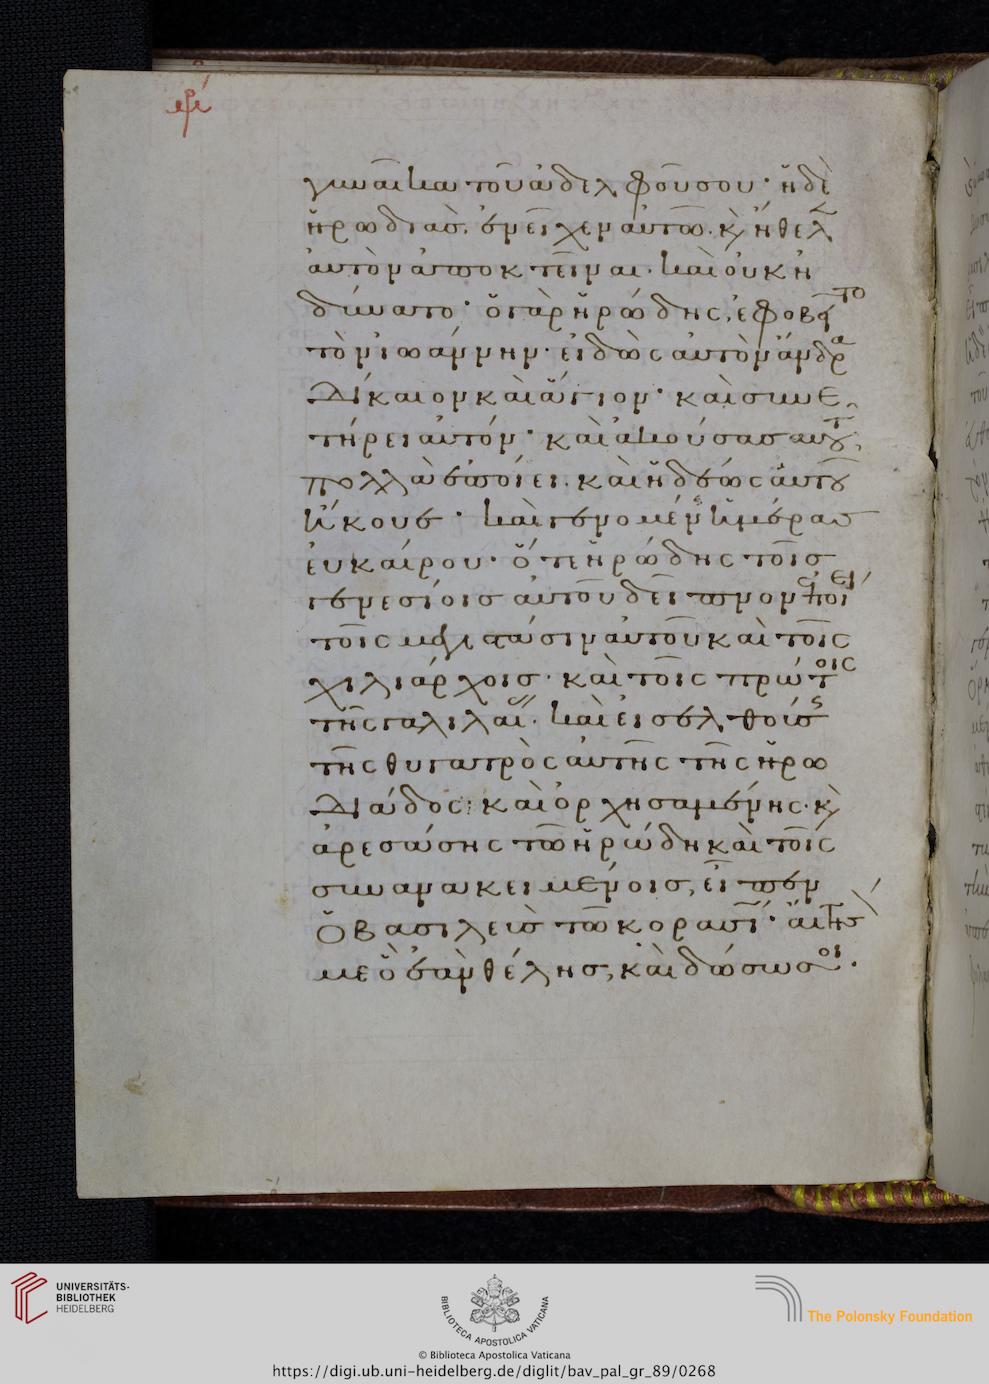 γυναῖκα τοῦ ἀδελφοῦ σου· ἡ δὲ
ἡρωδιὰσ, ἐνεῖχεν αὐτῶ. κ̀ ἤθελ
ἀυτὸν ἀποκτεῖναι. καὶ ὀυκ ἠ
δύνατο· ὁ γὰρ ἡρώδης, ἐφοβεῖτο
τὸν ἰωάννην· εἰδὼς αὐτὸν ἄνδρα
Δίκαιον καὶ ἅγιον· καὶ συνε
τήρει ἀυτόν· καὶ ἀκούσασ αυτοῦ,
πολλὰ ἐποίει. καὶ ἡδέως ἀυτοῦ
ἤκουε· καὶ γενομένης ἡμέρασ
ἐυκαίρου· ὅτε ἡρώδης τοῖσ
γενεσίοισ αὐτοῦ δεῖπνον ἐποίει
τοῖς μεγιστάσιν αὐτοῦ καὶ τοῖς
χιλιάρχοισ· καὶ τοῖς πρώτοις
τῆς γαλιλαί//. καὶ εἰσελθούσης
τῆς θυγατρὸς αὐτῆς τῆς ἡρω
Διάδος: καὶ ὀρχησαμένης· κ̀
ἀρεσάσης τῶ ἡρώδη καὶ τοῖς
συνανακειμένοισ, εἶπεν
Ὁ βασιλεὺσ τῶ κορασί῀· ἄιτησ
με ὃ ἐὰν θέλησ, καὶ δώσω σοι.
UNIVERSITÄTS-
BIBLIOTHEK
HEIDELBERG
BIBLIOTECA APOSTOLICA VATICANA
© Biblioteca Apostolica Vaticana
The Polonsky Foundation
https://digi.ub.uni-heidelberg.de/diglit/bav_pal_gr_89/0268